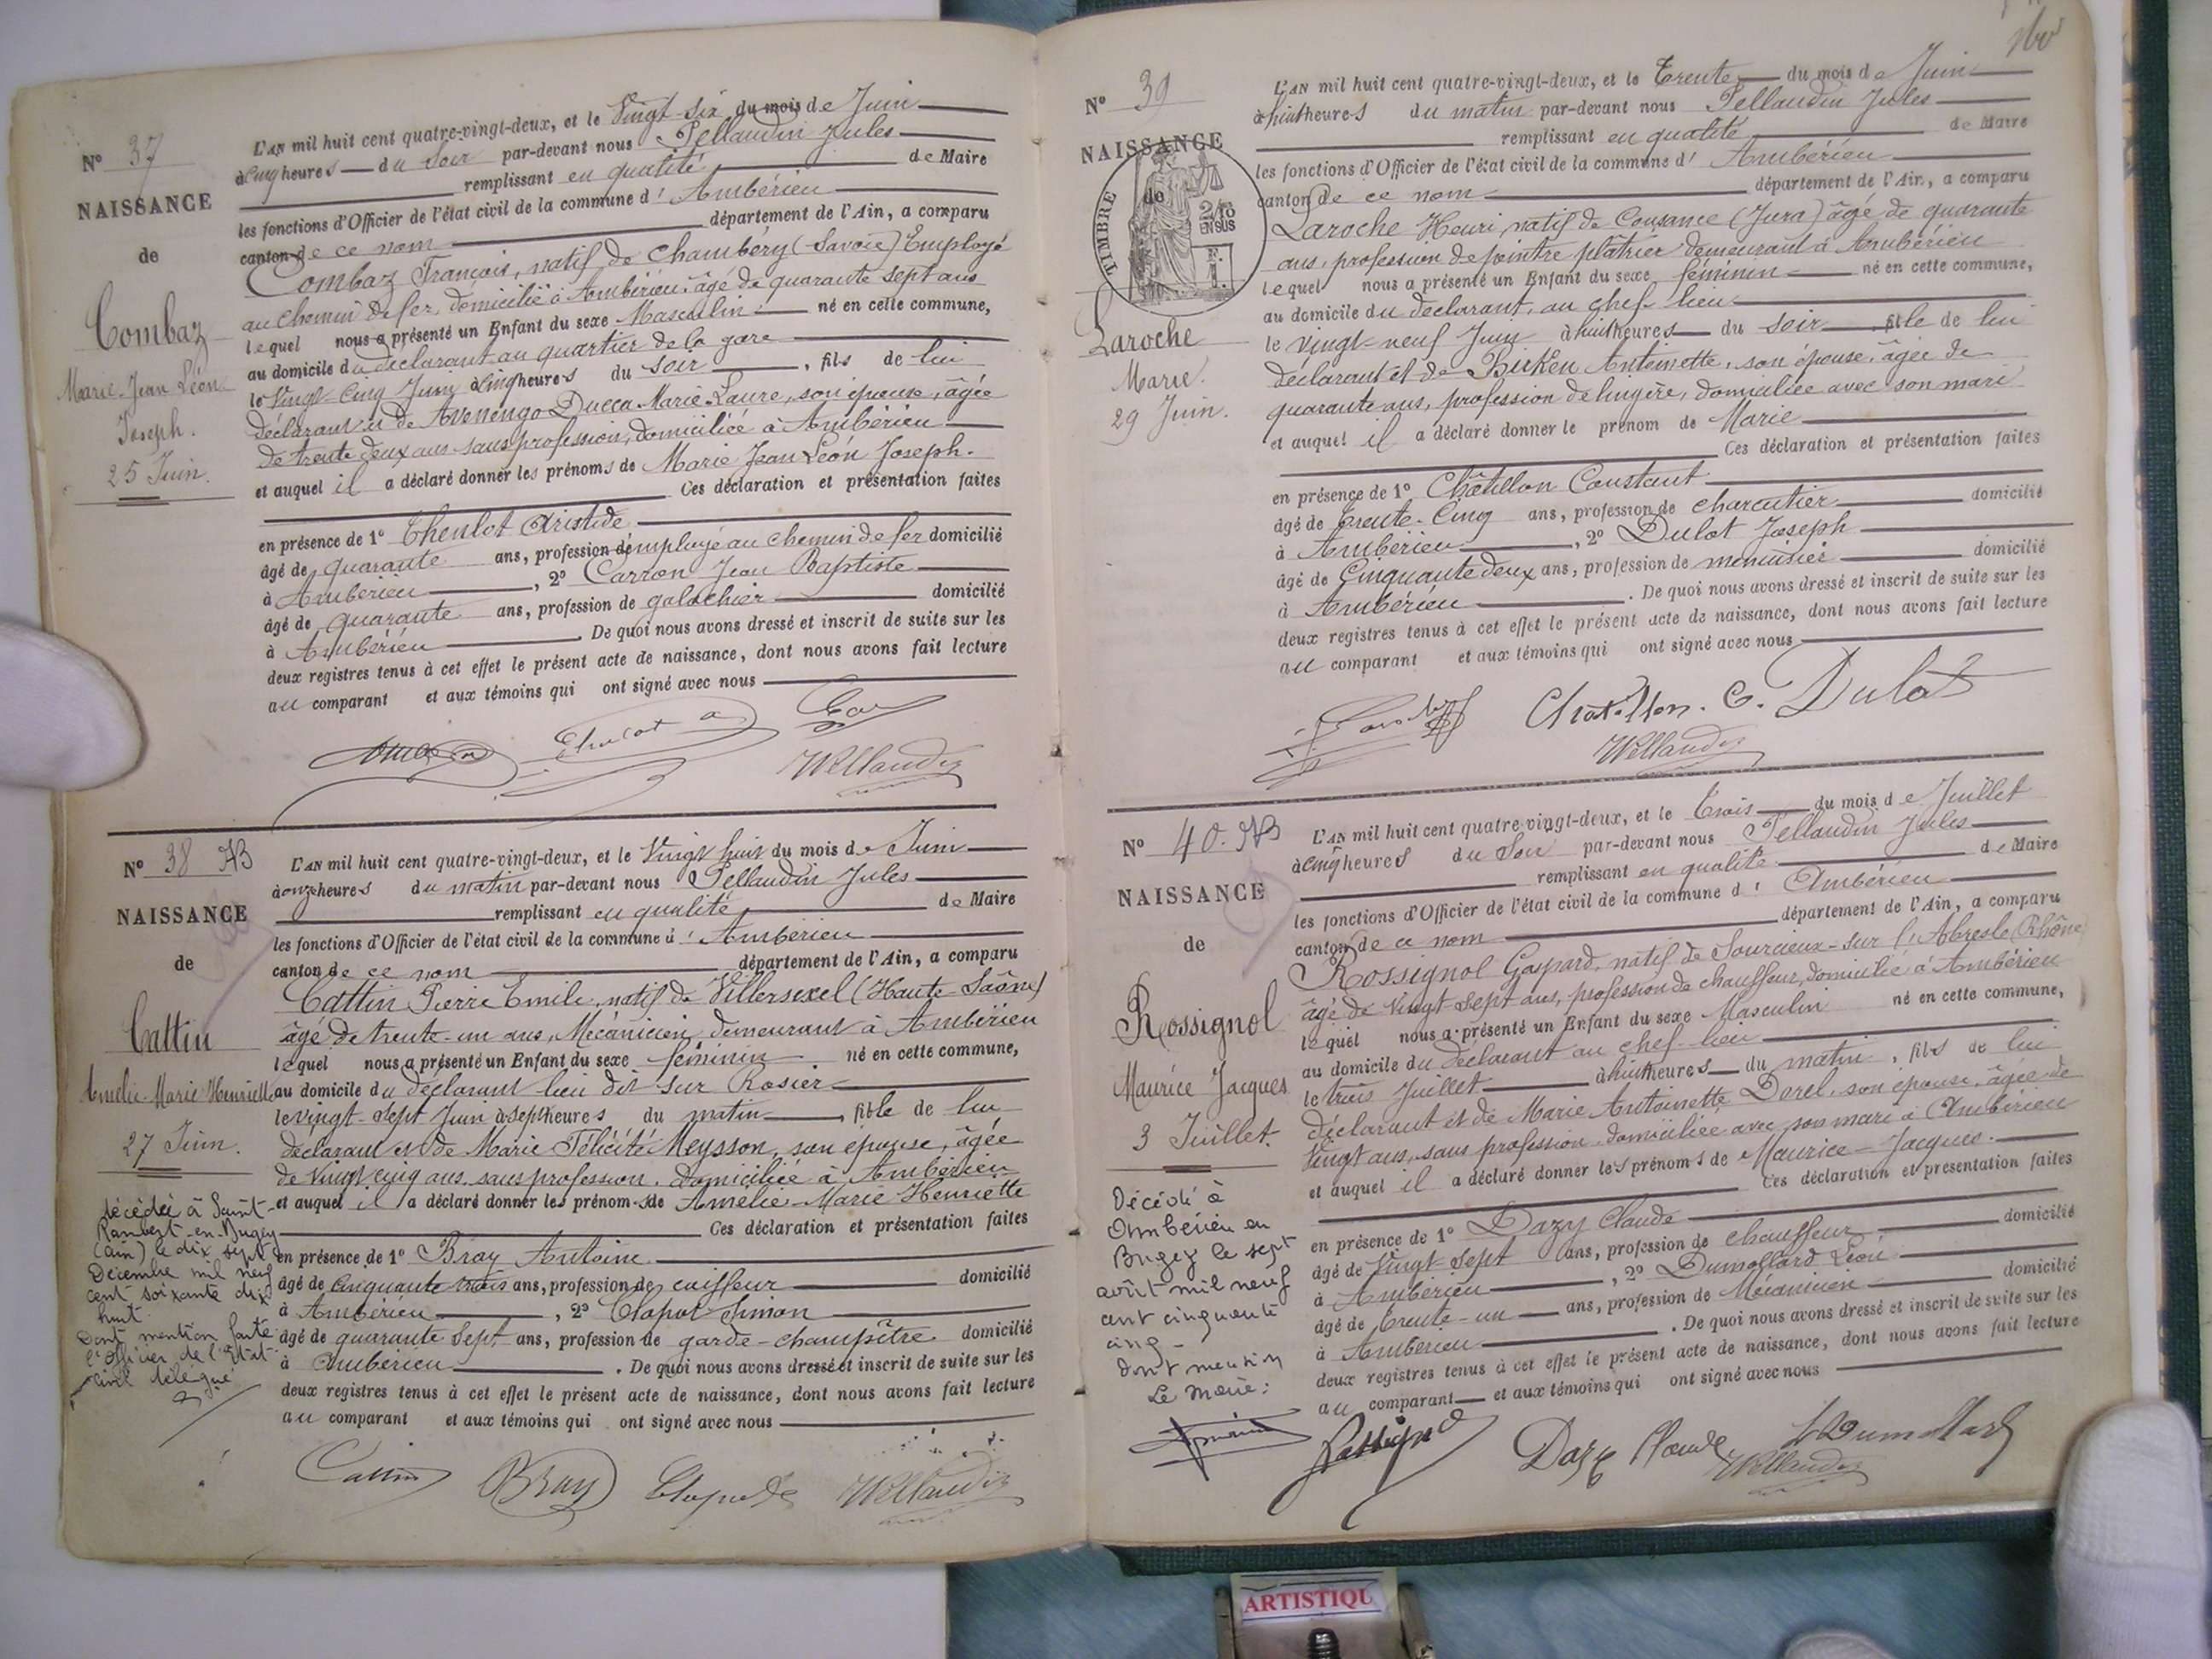 N° 37
NAISSANCE
de
Combaz
Marie-Jean Léon
Joseph.
25 Juin.
L'AN mil huit cent quatre-vingt-deux, et le Vingt-six du mois de Juin
à cinq heures du soir par-devant nous Pellaudin Jules
remplissant en qualité de Maire
les fonctions d'Officier de l'état civil de la commune d' Ambérieu
canton de ce nom département de l'Ain, a comparu
Combaz François, natif de Chambéry (Savoie) Employé
au chemin de fer, domicilié à Ambérieu, âgé de quarante sept ans
lequel nous a présenté un Enfant du sexe Masculin né en cette commune,
au domicile du déclarant au quartier de la gare
le Vingt-Cinq Juin à cinq heures du soir, fils de lui
déclarant et de Avenengo Ducca Marie-Laure, son épouse, âgée
de trente deux ans sans profession, domiciliée à Ambérieu
et auquel il a déclaré donner les prénoms de Marie Jean Léon Joseph.
Ces déclaration et présentation faites
en présence de 1° Thenlot Aristide
âgé de quarante ans, profession d'employé au chemin de fer domicilié
à Ambérieu, 2° Carron Jean Baptiste
âgé de quarante ans, profession de galochier domicilié
à Ambérieu. De quoi nous avons dressé et inscrit de suite sur les
deux registres tenus à cet effet le présent acte de naissance, dont nous avons fait lecture
au comparant et aux témoins qui ont signé avec nous
JPellaudin
N° 38 NB
NAISSANCE
de
Cattin
Amélie-Marie Henriette
27 Juin.
décédée à Saint-
Rambert-en-Bugey
(Ain) le dix sept
Décembre mil neuf
cent soixante dix
huit.
Dont mention faite
l'Officier de l'Etat-
civil délégué
L'AN mil huit cent quatre-vingt-deux, et le Vingt huit du mois de Juin
à onze heures du matin par-devant nous Pellaudin Jules
remplissant en qualité de Maire
les fonctions d'Officier de l'état civil de la commune d' Ambérieu
canton de ce nom département de l'Ain, a comparu
Cattin Pierre Emile, natif de Villersexel (Haute-Saône)
âgé de trente-un ans, Mécanicien, demeurant à Ambérieu
lequel nous a présenté un Enfant du sexe féminin né en cette commune,
au domicile du déclarant lieu dit sur Rosier
le vingt-sept Juin à sept heures du matin, fille de lui
déclarant et de Marie Félicité Meysson, son épouse, âgée
de Vingt cinq ans sans profession, domiciliée à Ambérieu
et auquel il a déclaré donner les prénoms de Amélie-Marie Henriette
Ces déclaration et présentation faites
en présence de 1° Bray Antoine
âgé de cinquante trois ans, profession de coiffeur domicilié
à Ambérieu, 2° Clapot Simon
âgé de quarante sept ans, profession de garde-champêtre domicilié
à Ambérieu. De quoi nous avons dressé et inscrit de suite sur les
deux registres tenus à cet effet le présent acte de naissance, dont nous avons fait lecture
au comparant et aux témoins qui ont signé avec nous
Cattin Bray JPellaudin
N° 39
NAISSANCE
de
TIMBRE
2/10 EN SUS
Laroche
Marie.
29 Juin.
L'AN mil huit cent quatre-vingt-deux, et le Trente du mois de Juin
à huit heures du matin par-devant nous Pellaudin Jules
remplissant en qualité de Maire
les fonctions d'Officier de l'état civil de la commune d' Ambérieu
canton de ce nom département de l'Ain, a comparu
Laroche Henri, natif de Cousance (Jura) âgé de quarante
ans, profession de peintre plâtrier demeurant à Ambérieu
lequel nous a présenté un Enfant du sexe féminin né en cette commune,
au domicile du déclarant, au chef-lieu
le vingt-neuf Juin à huit heures du soir, fille de lui
déclarant et de Bicken Antoinette, son épouse, âgée de
quarante ans, profession de lingère, domiciliée avec son mari
et auquel il a déclaré donner le prénom de Marie
Ces déclaration et présentation faites
en présence de 1° Châtillon Constant
âgé de trente-cinq ans, profession de charcutier domicilié
à Ambérieu, 2° Dulot Joseph
âgé de Cinquante deux ans, profession de menuisier domicilié
à Ambérieu. De quoi nous avons dressé et inscrit de suite sur les
deux registres tenus à cet effet le présent acte de naissance, dont nous avons fait lecture
au comparant et aux témoins qui ont signé avec nous
Chatillon. C. Dulot
JPellaudin
N° 40. NB
NAISSANCE
de
Rossignol
Maurice Jacques
3 Juillet.
Décédé à
Ambérieu en
Bugey le sept
août mil neuf
cent cinquante
cinq -
dont mention
Le Maire:
L'AN mil huit cent quatre-vingt-deux, et le Trois du mois de Juillet
à cinq heures du Soir par-devant nous Pellaudin Jules
remplissant en qualité de Maire
les fonctions d'Officier de l'état civil de la commune d' Ambérieu
canton de ce nom département de l'Ain, a comparu
Rossignol Gaspard, natif de Sourcieux-sur l'Abresle (Rhône)
âgé de Vingt-sept ans, profession de chauffeur, domicilié à Ambérieu
lequel nous a présenté un Enfant du sexe Masculin né en cette commune,
au domicile du déclarant au chef-lieu
le trois Juillet à huit heures du matin, fils de lui
déclarant et de Marie Antoinette Dorel, son épouse, âgée de
Vingt ans, sans profession, domiciliée avec son mari à Ambérieu
et auquel il a déclaré donner les prénoms de Maurice-Jacques.
Ces déclaration et présentation faites
en présence de 1° Dazy Claude
âgé de Vingt-sept ans, profession de chauffeur domicilié
à Ambérieu, 2° Dumollard Léon
âgé de trente-un ans, profession de Mécanicien domicilié
à Ambérieu. De quoi nous avons dressé et inscrit de suite sur les
deux registres tenus à cet effet le présent acte de naissance, dont nous avons fait lecture
au comparant et aux témoins qui ont signé avec nous
Rossignol Dazy Claude LDumollard
JPellaudin
ARTISTIQU